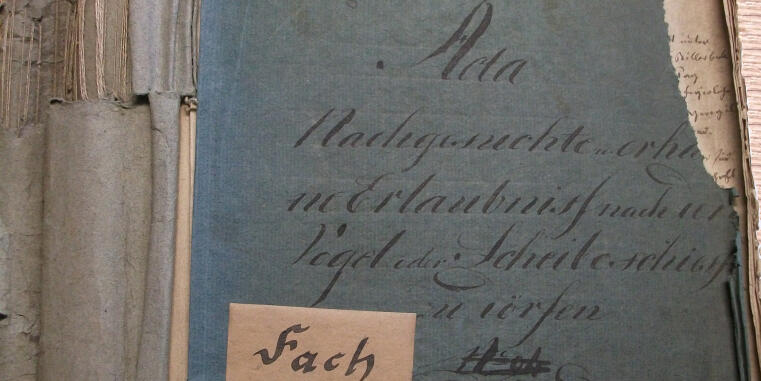 Acta
Nachgesuchte u. erha
ne Erlaubniss nach dem
Vogel oder Scheibe schiess
zu dörfen
Fach